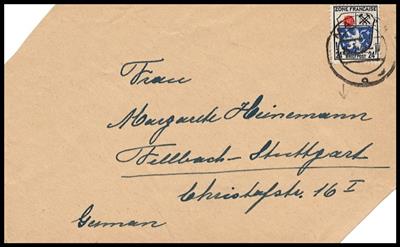 ZONE FRANÇAISE
24 24
Frau
Margarete Heinemann
Fellbach-Stuttgart
Christofstr. 16 I
German